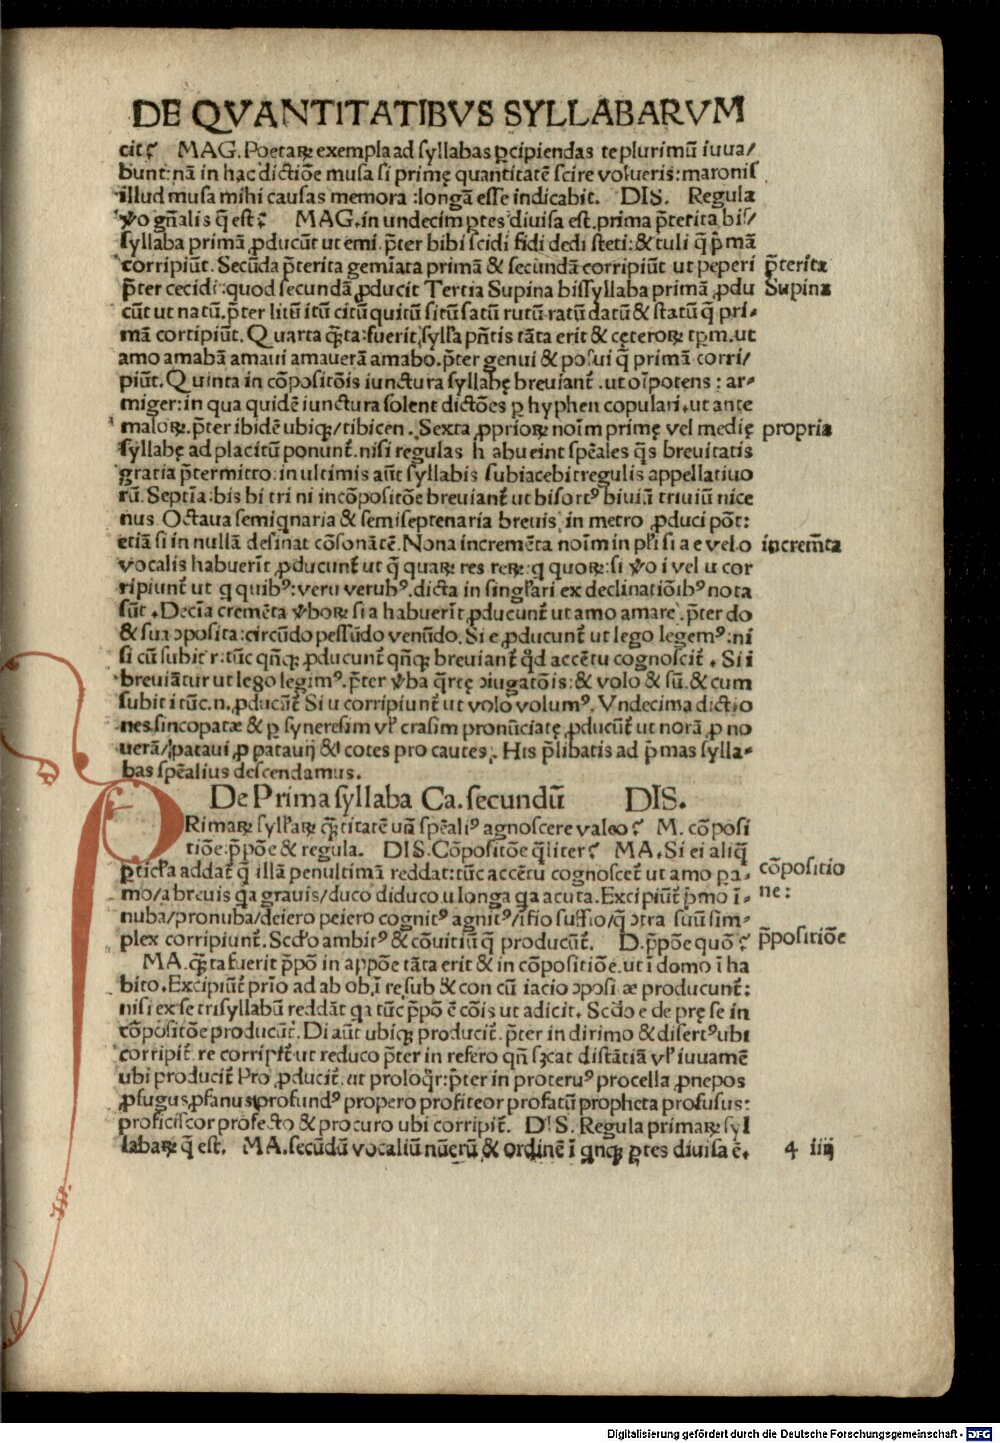 DE QVANTITATIBVS SYLLABARVM
cit⸮ MAG. Poetaꝝ exempla ad syllabas ꝑcipiendas te plurimū iuua/
bunt: nā in hac dictiōe musa si primę quantitatē scire volueris: maronis
illud musa mihi causas memora: longā esse indicabit. DIS. Regula
ꝟo gn̄alis q̄ est⸮ MAG. in undecim ꝑtes diuisa est. prima p̄terita bis/
syllaba primā ꝓducūt ut emi. p̄ter bibi scidi fidi dedi steti: & tuli q̄ p̄mā
corripiūt. Secūda p̄terita gemīata primā & secundā corripiūt ut peperi
p̄terita
p̄ter cecidi: quod secundā ꝓducit Tertia Supina bissyllaba primā ꝓdu
Supina
cūt ut natū. p̄ter litū itū citū quitū sitū satū rutū ratū datū & statū q̄ pri-
mā corripiūt. Quarta q̄ꝫta: fuerit sylła pn̄tis tāta erit & ceteroꝝ tp̄m. ut
amo amabā amaui amauerā amabo. p̄ter genui & posui q̄ primā corri/
piūt. Quinta in cōpositōis iunctura syllabę breuiant̄. ut oīpotens: ar-
miger: in qua quidē iunctura solent dictōes ꝑ hyphen copulari. ut ante
maloꝝ. p̄ter ibidē ubiqꝫ/tibicen. Sexta ꝓprioꝝ noīm primę vel medię
propria
syllabę ad placitū ponunt̄. nisi regulas habueint spēales q̄s breuitatis
gratia p̄termitto: in ultimis aūt syllabis subiacebit regulis appellatiuo
rū. Septīa: bis bi tri ni incōpositōe breuiant̄ ut bisortꝰ biuiū triuiū nice
nus Octaua semiqnaria & semiseptenaria breuis in metro ꝓduci pōt:
etiā si in nullā desinat cōsonātē. Nona incremēta noīm in płi si a e vel o
increm̄ta
vocalis habuerīt ꝓducunt̄ ut q̄ quaꝝ res reꝝ: q quoꝝ: si ꝟo i vel u cor
ripiunt̄ ut q quibꝰ: veru verubꝰ. dicta in singłari ex declinatiōibꝰ nota
sūt. Decīa cremēta ꝟboꝝ si a habuerīt ꝓducunt̄ ut amo amare. p̄ter do
& sua ↄposita: circūdo pessūdo venūdo. Si e ꝓducunt̄ ut lego legemꝰ: ni
si cū subit̄ r: tūc qn̄qꝫ ꝓducunt̄ qn̄qꝫ breuiant̄ q̄d accētu cognoscit̄. Si i
breuiātur ut lego legimꝰ. p̄ter ꝟba q̄rtę ↄiugatōis: & volo & sū. & cum
subit i tūc. n. ꝓducūt̄ Si u corripiunt̄ ut volo volumꝰ. Vndecima dictio
nes sincopatæ & ꝑ syneresim vł crasim pronūciatę ꝓducūt̄ ut norā ꝓ no
uerā/pataui ꝓ patauij & cotes pro cautes. His p̄libatis ad p̄mas sylla-
bas spēalius descendamus.
De Prima syllaba Ca. secundū DIS.
Rimaꝝ syłłaꝝ q̄ꝫtitatē unā spēaliꝰ agnoscere valeo⸮ M. cōposi
tiōe: p̄pōe & regula. DIS. Cōpositōe q̄liter⸮ MA. Si ei aliq̄
ꝑticła addat̄ q̄ illā penultimā reddat: tūc accētu cognoscet̄ ut amo ꝑa-
cōpositio
mo/a breuis qa grauis/duco diduco. u longa qa acuta. Excipiūt̄ p̄mo ī-
ne:
nuba/pronuba/deiero peiero cognitꝰ agnitꝰ/īfio suffio/q̄ ↄtra suū sim-
plex corripiunt̄. Scd̄o ambitꝰ & cōuitiū q̄ producūt̄. D. p̄pōe quō⸮
p̄positiōe
MA. q̄ꝫta fuerit p̄pō in appōe tāta erit & in cōpositiōe. ut ī domo ī ha
bito. Excipiūt̄ prīo ad ab ob, ī re sub & con cū iacio ↄposi æ producunt̄:
nisi ex se trisyllabū reddāt qa tūc p̄pō ē cōis ut adicit. Scd̄o e de pre se in
cōpositōe producūt̄. Di aūt ubiqꝫ producit̄. p̄ter in dirimo & disertꝰ ubi
corripit̄. re corripit̄ ut reduco p̄ter in refero qn̄ sꝫcat distātiā vł iuuamē
ubi producit̄ Pro ꝓducit̄. ut proloq̄r: p̄ter in proteruꝰ procella ꝓnepos
ꝓfugus, ꝓfanus ꝓfundꝰ propero profiteor profatū propheta profusus:
proficiscor profecto & procuro ubi corripit̄. DIS. Regula primaꝝ syl
labaꝝ q̄ est. MA. secūdū vocaliū nūerū & ordinē ī qnqꝫ ꝑtes diuisa ē.
4 iiij
Digitalisierung gefördert durch die Deutsche Forschungsgemeinschaft - DFG